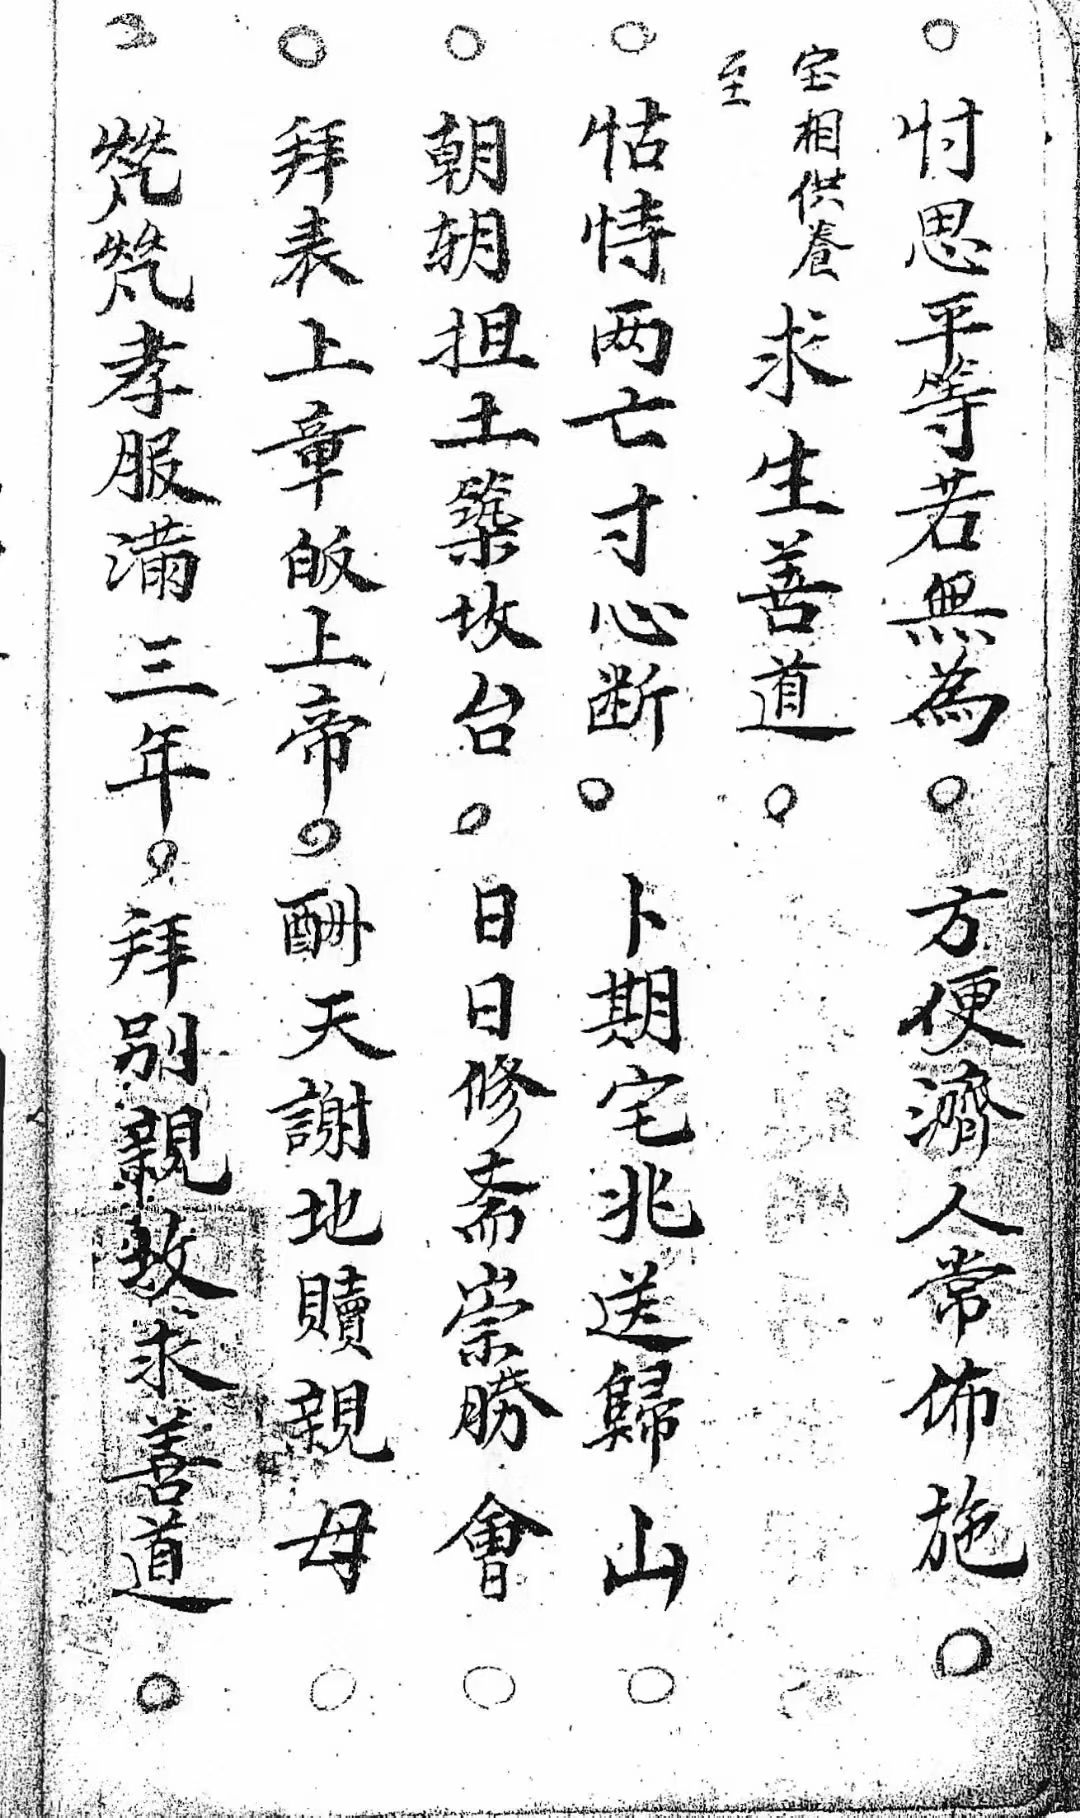 ○忖思平等若無為○方便濟人常佈施○
至宝相供養求生善道○
○怙恃两亡寸心断○卜期宅兆送歸山○
○朝朝担土築坟台○日日修斎崇勝會○
○拜表上章皈上帝○酬天謝地贖親母○
煢煢孝服满三年○拜别親故求善道○